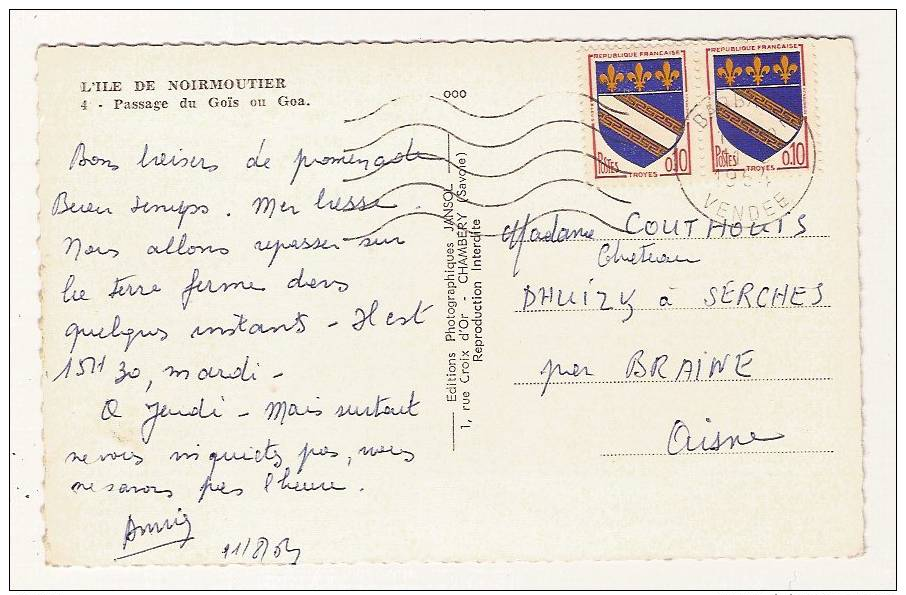 L'ILE DE NOIRMOUTIER
4 - Passage du Goïs ou Goa.
Bons baisers de promenade
Beau temps. Mer basse.
Nous allons repasser sur
la terre ferme dans
quelques instants - Il est
15H30, mardi -
A Jeudi - Mais surtout
ne vous inquietez pas, nous
ne savons pas l'heure.
Annie
11/8/64
ooo
Editions Photographiques JANSOL
1, rue Croix d'Or - CHAMBÉRY (Savoie)
Reproduction Interdite
REPUBLIQUE FRANÇAISE
POSTES
0,10
TROYES
REPUBLIQUE FRANÇAISE
POSTES
0,10
TROYES
1964
VENDEE
Madame COUTHOUIS
Chateau
DHUIZY à SERCHES
par BRAINE
Aisne